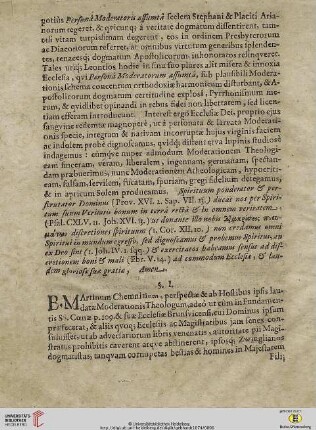 potiùs Personâ Moderatoris assumtâ scelera Stephani & Placiti Aria-
norum tegeret, & qvicunq; à veritate dogmatum dissentirent, tam-
ti vitam turpissimam degerent, eos in ordinem Presbyterorum
ac Diaconorum referret, at omnibus virtutum generibus splenden-
tes, tenacesq; dogmatum Apostolicorum inhonoratos relinqveret.
Tales utiq; Leontios hodie in sinu suo plures alit misera & innoxia
Ecclesia, qvi Personâ Moderatorum assumtâ, sub plausibili Modera-
tionis schema concentum orthodoxiæ harmonicum disturbant, & A-
postolicorum dogmatum certitudine explosâ, Pyrrhonissimum me-
rum, & qvidlibet opinandi in rebus fidei non libertatem, sed licen-
tiam efferam introducunt. Interest ergò Ecclesiæ Dei, proprio ejus
sangvine redemtæ magnoperè, ut è personata & larvata Moderati-
onis specie, integram & nativam incorruptæ hujus virginis faciem
ac indolem probè dignoscamus, qvidq; distent æra lupinis studiosè
indagemus: cumqve nuper admodum Moderationem Theologi-
cam sinceram, veram, liberalem, ingenuam, germanam, spectan-
dam præbuerimus, nunc Moderationem Atheologicam, hypocriti-
cam, falsam, servilem, fucatam, spuriam, gregi fidelium detegamus,
& in apricum Solem producamus. Spirituum ponderator & per-
scrutator Dominus (Prov. XVI. 2. Sap. VII. 23.) ducat nos per Spiri-
tum suum Veritatis bonum in terra rectâ & in omnem veritatem
(Psal. CXLV. 11. Joh. XVI. 13.)
discretiones spirituum (1. Cor. XII. 10.) non credamus omni
Spiritui in mundum egresso, sed dignoscamus & probemus Spiritus, an
ex Deo sint (1. Joh. IV. 1. sqq.) & exercitatos habeamus sensus ad dis-
cretionem boni & mali (Ebr. V. 14.) ad commodum Ecclesiæ, & lau-
dem gloriosæ suæ gratiæ, Amen.
§. I.
B. MArtinum Chemnitium, perspectæ & ab Hostibus ipsis lau-
datæ Moderationis Theologum, adeò ut eum in Fundamen-
tis SS. Cœnæ p. 209. & suæ Ecclesiæ Brunsvicensi, eum Dominus
præfecerat, & aliis qvoq; Ecclesiis ac Magistratibus jam senes con-
ut ab adversariorum libris venenatis autoritate pii Magi-
stratus prohibitis cavere atqve abstinerent, ipsosq; Zwinglianos
dogmatistas, tanqvam corruptas bestias & homines in Majestatem
Filii